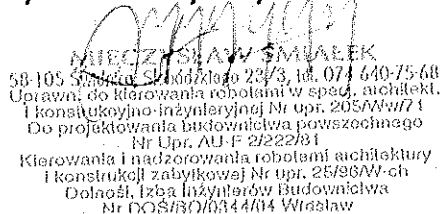 MIECZYSŁAW ŚMIAŁEK
58-105 Świdnica, 23/3, tel. 074 640-75-68
Uprawn. do kierowania robotami w specj. architekt.
i konstrukcyjno-inżynieryjnej Nr upr. 205/Ww/71
Do projektowania budownictwa powszechnego
Nr Upr. AU-F 2/222/81
Kierowania i nadzorowania robotami architektury
i konstrukcji zabytkowej Nr upr. 25/96/W-ch
Dolnośl. Izba Inżynierów Budownictwa
Nr DOŚ/BO/0344/04 Wrocław